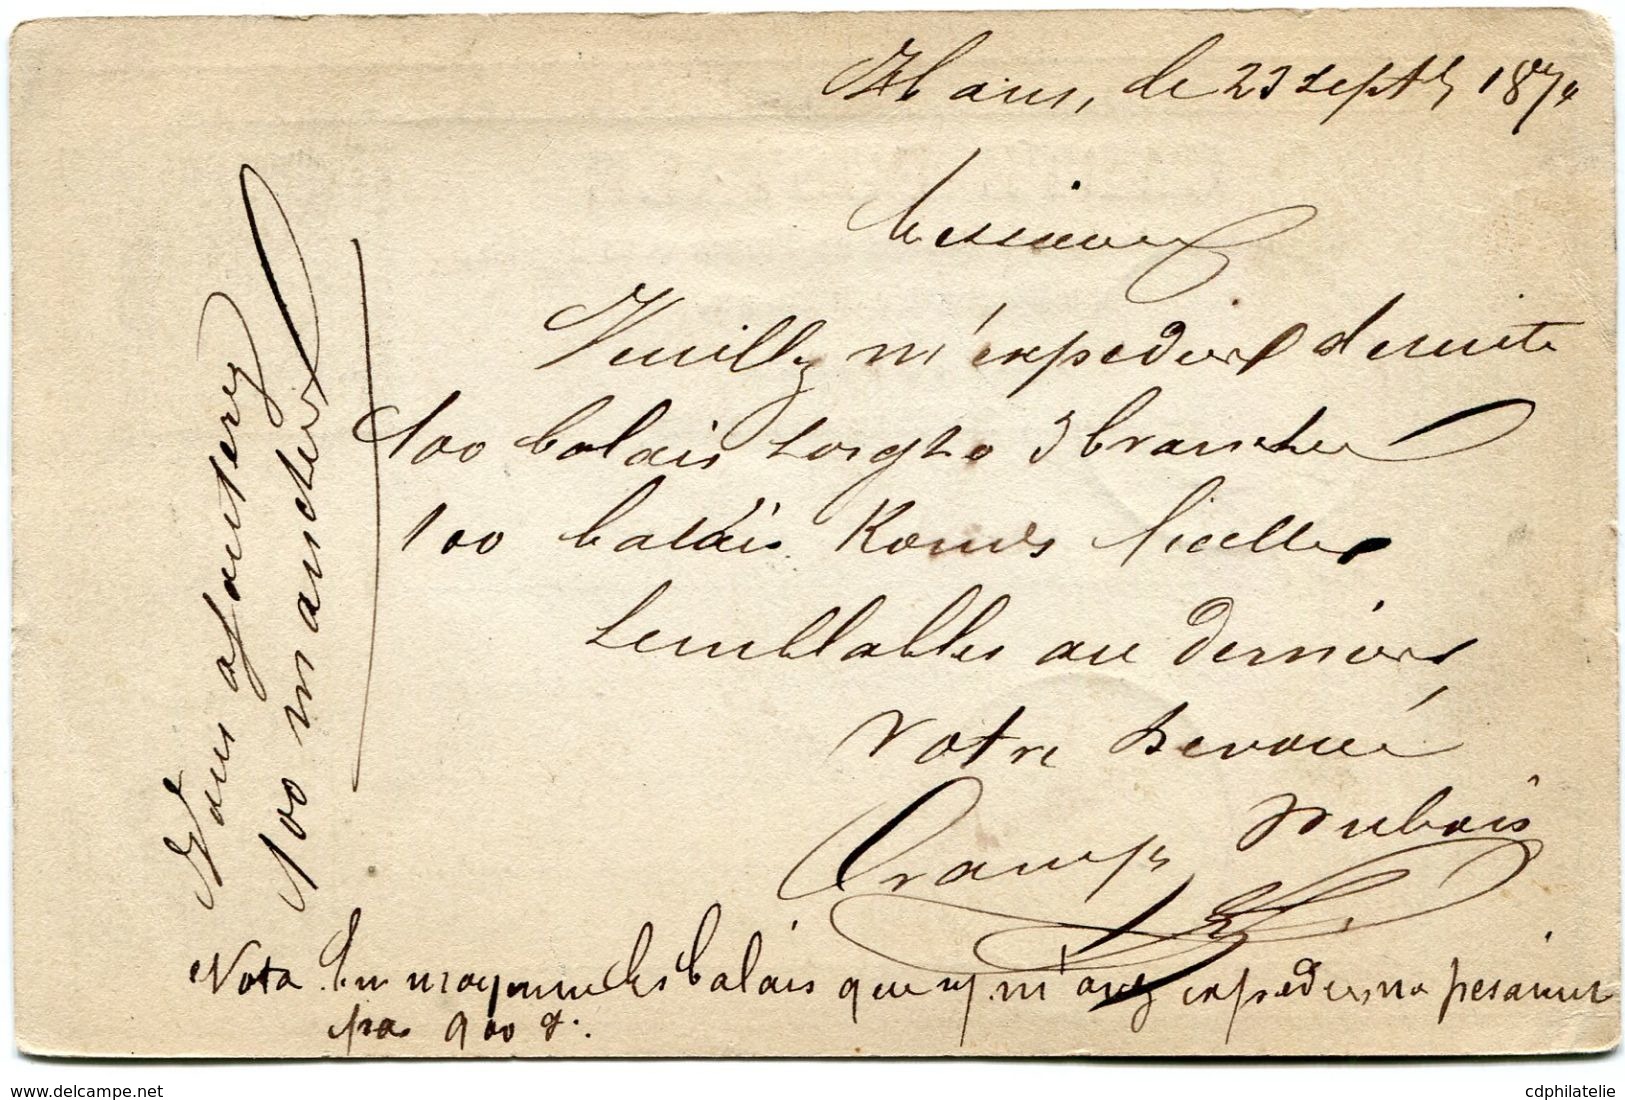 Mans, le 23 septb 1874
Messieurs
Veuillez m'expedier desuite
100 balais sorgho 3 branches
100 balais Ronds ficelles
semblables au dernier
Votre Devoué
Dubois
Vous ajouterez
100 manches
Nota. En moyenne les balais que vs m'avez expedier, ne pesaient
pas 900 g.
delcampe.net
cdphilatelie